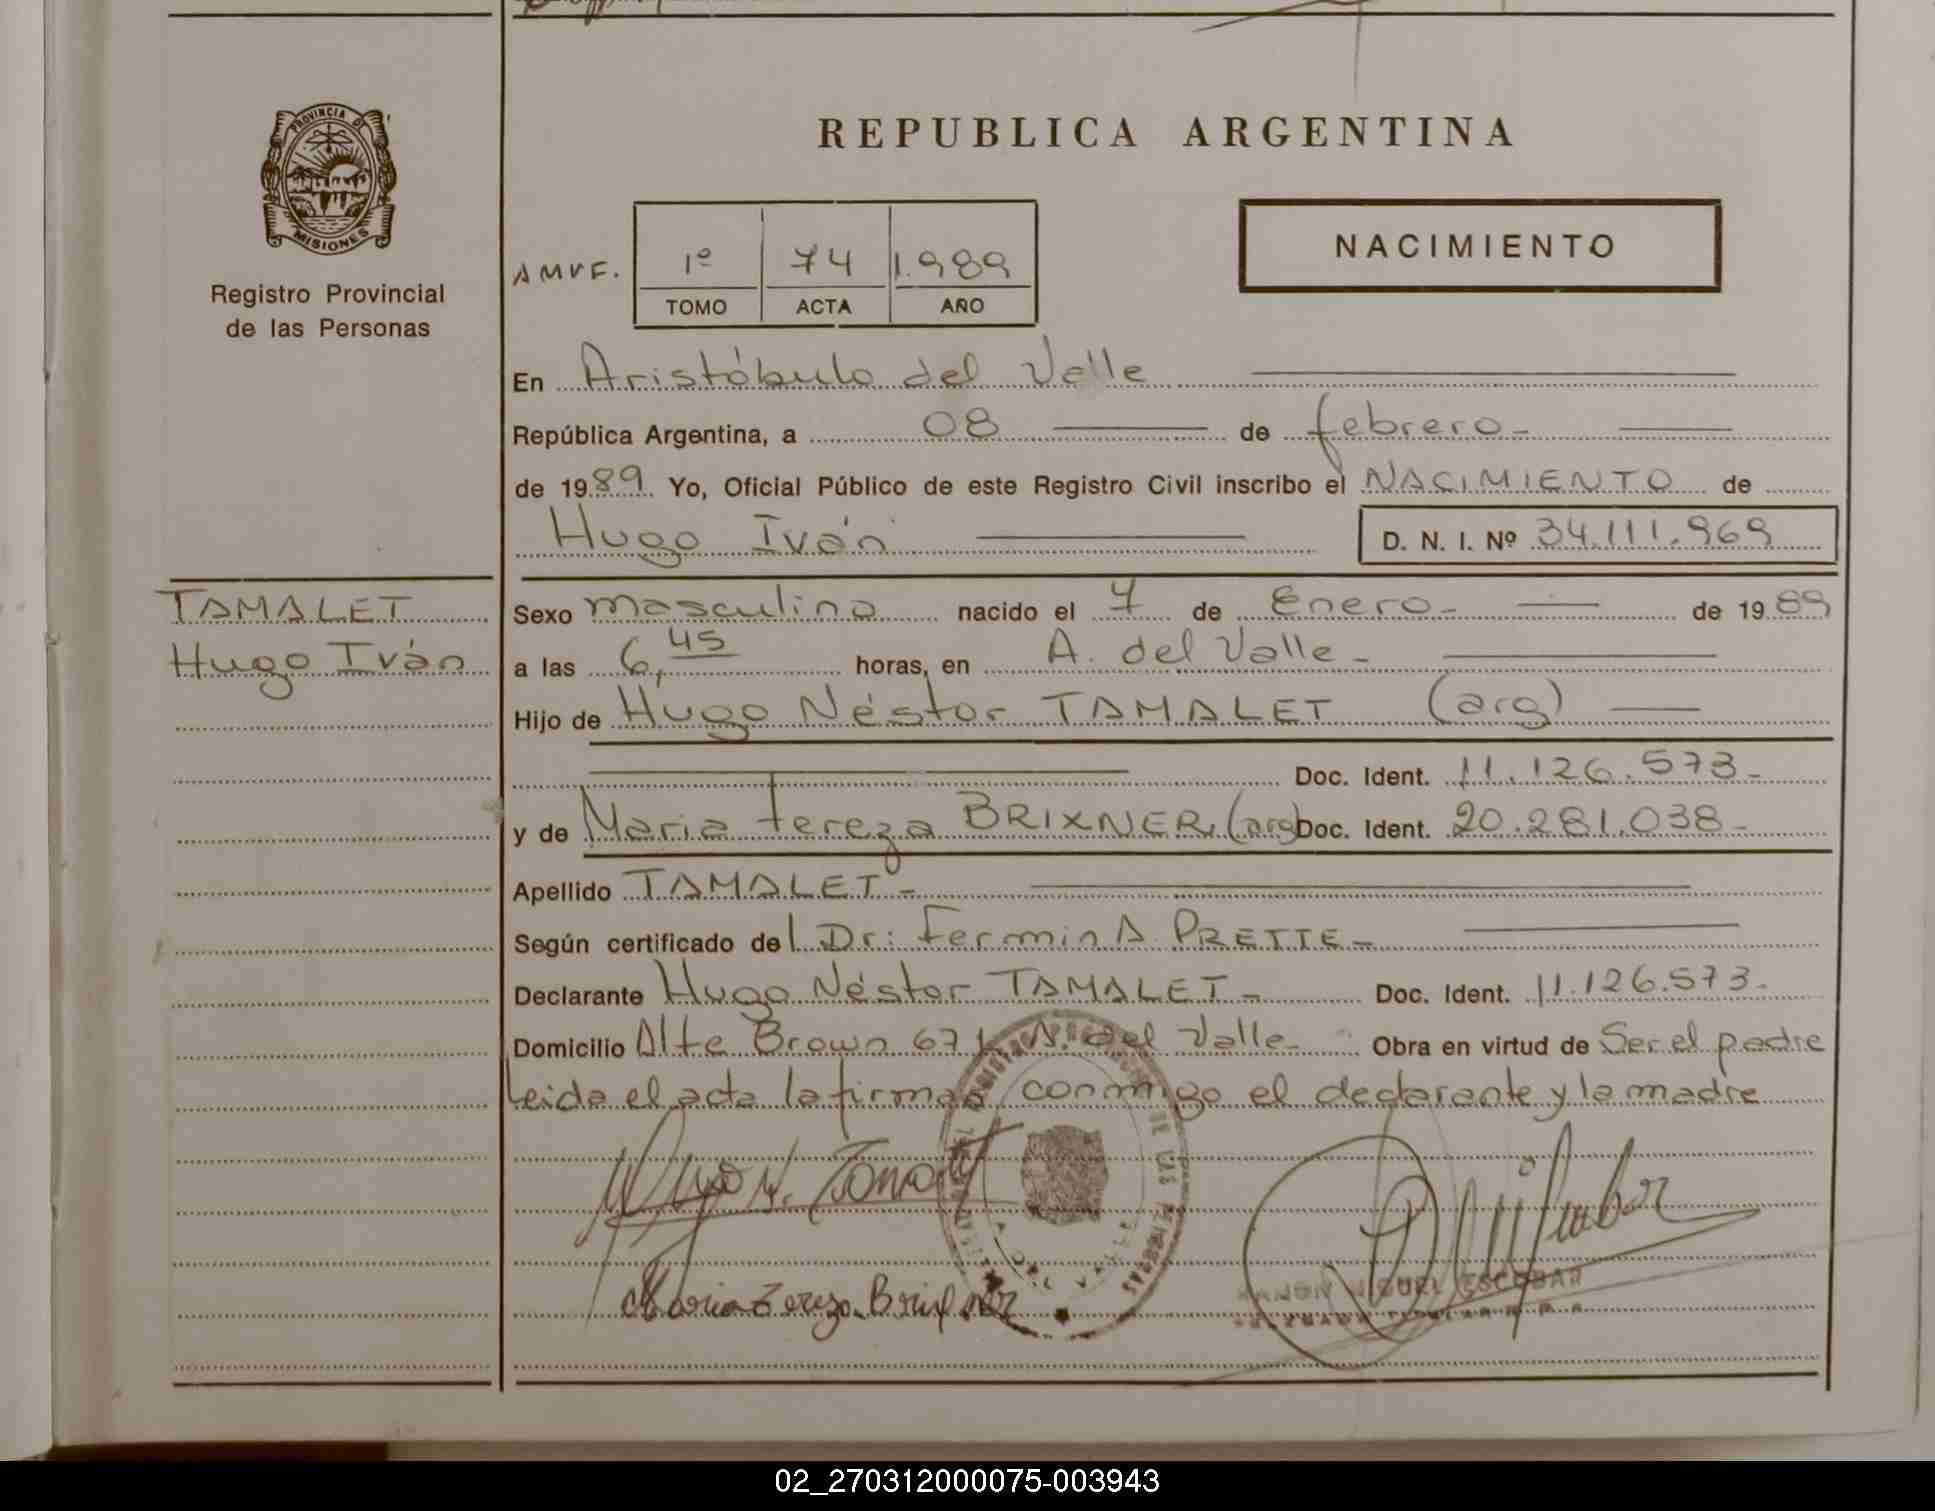 PROVINCIA DE
MISIONES
Registro Provincial
de las Personas
REPUBLICA ARGENTINA
NACIMIENTO
AMVF. 1º 74 1.989
TOMO ACTA AÑO
En Aristóbulo del Valle
República Argentina, a 08 de febrero-
de 1989 Yo, Oficial Público de este Registro Civil inscribo el NACIMIENTO de
Hugo Iván D. N. I. Nº 34.111.969
TAMALET
Hugo Iván
Sexo masculino nacido el 7 de Enero- de 1989
a las 6,45 horas, en A. del Valle-
Hijo de Hugo Néstor TAMALET (arg)
Doc. Ident. 11.126.573-
y de Maria tereza BRIXNER. (arg) Doc. Ident. 20.281.038-
Apellido TAMALET-
Según certificado del Dr: Fermin A. PRETTE-
Declarante Hugo Néstor TAMALET- Doc. Ident. 11.126.573-
Domicilio Alte Brown 671 A. del Valle- Obra en virtud de Ser el padre
Leida el acta la firman conmigo el declarante y la madre
DE LAS PERSONAS
A. DEL VALLE
Maria Tereza Brixner
RAMON MIGUEL ESCOBAR
02_270312000075-003943